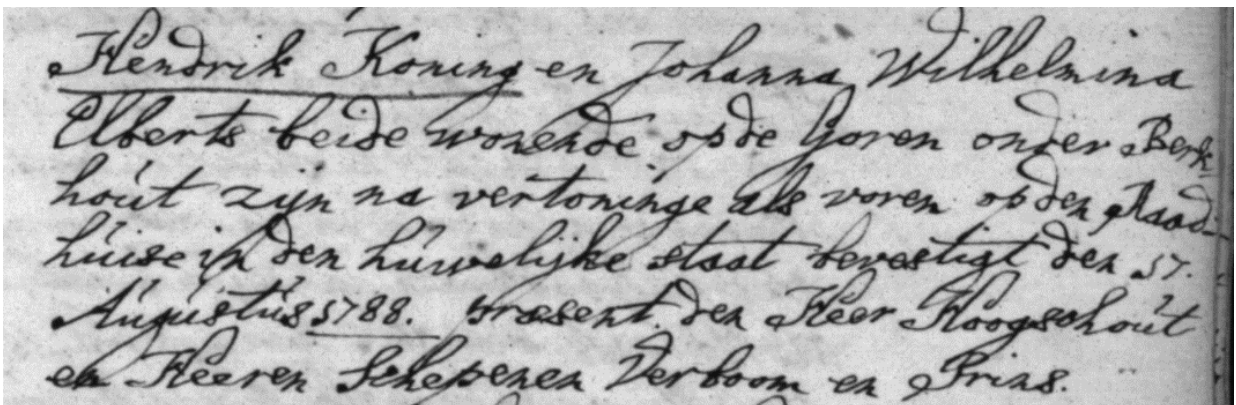 Hendrik Koning en Johanna Wilhelmina
Elberts beide wonende op de Goren onder Berk-
hout zijn na vertoninge als voren op den Raad-
huise in den huwelijke staat bevestigt den 17.
Augustus 1788. præsent den Heer Hoogschout
en Heeren Schepenen Verboom en Prins.